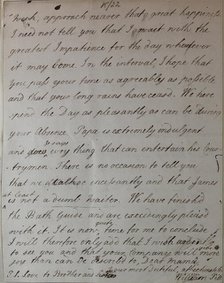 approach nearer that great happiness
I need not tell you that I wait with the
greatest Impatience for the day whenever
it may come. In the interval, I hope that
you pass your time as agreeably as possible
and that your long rains have ceased. We have
spend the Day as pleasantly as can during
your Absence. Papa is extremely indulgent
and every thing that can entertain his
trymen. There is no occasion to tell you
that we incessantly and that James
is not a dumb waiter. We have finish'd
the and are exceedingly pleased
with it. It is now time for me to conclude
I will therefore only add that I wish
to see you and that your company will
you than can be describ'd, Dear Mama
your most dutiful, affectionate
love to Brother and William Pitt